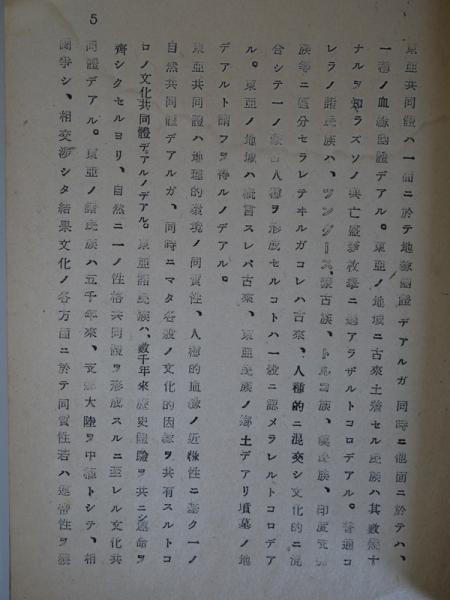 5
東亞共同體ハ一面ニ於テ地緣團體デアルガ 同時ニ他面ニ於テハ、
一種ノ血緣團體デアル。東亞ノ地域ニ古來土着セル民族ハ其數幾十
ナルヲ知ラズソノ興亡盛衰枚擧ニ遑アラザルトコロデアル。普通コ
レラノ諸民族ハ、ツングース、蒙古族、トルコ族、漢民族、印度支那
族等ニ區分セラレテヰルガコレハ古來、人種的ニ混交シ文化的ニ混
合シテ一ノ 人種ヲ形成セルコトハ一般ニ認メラレルトコロデア
ル。東亞ノ地域ハ概言スレバ古來、東亞民族ノ鄕土デアリ墳墓ノ地
デアルト謂フヲ得ルノデアル。
東亞共同體ハ地理的環境ノ同質性、人種的血緣ノ近親性ニ基ク一ノ
自然共同體デアルガ、同時ニマタ各般ノ文化的因緣ヲ共有スルトコ
ロノ文化共同體デアルノデアル。東亞諸民族ハ、數千年來歷史體驗ヲ共ニシ運命ヲ
齊シクセルヨリ、自然ニ一ノ性格共同體ヲ形成スルニ至レル文化共
同體デアル。東亞ノ諸民族ハ五千年來、支那大陸ヲ中樞トシテ、相
鬪爭シ、相交涉シタ結果文化ノ各方面ニ於テ同質性若ハ連帶性ヲ